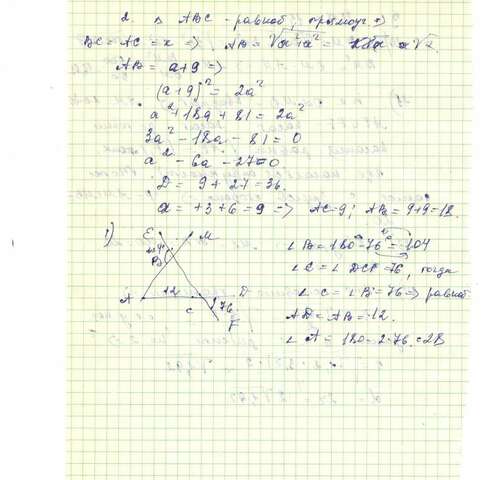 2. в ABC - равноб, прямоуг =>
BC = AC = x => AB = √a²+a² = a√2
AB = a+9 =>
(a+9)² = 2a²
a² + 18a + 81 = 2a²
3a² - 18a - 81 = 0
a² - 6a - 27 = 0
D = 9 + 27 = 36.
a = +3 + 6 = 9 => AC=9; AB = 9+9=18.
1)
E M
B
A 12 C D
76
F
∠B = 180-76 = 104
∠C = ∠DCF = 76, тогда
∠C = ∠B = 76 => равноб
AD = AB = 12.
∠A = 180-2·76 = 28